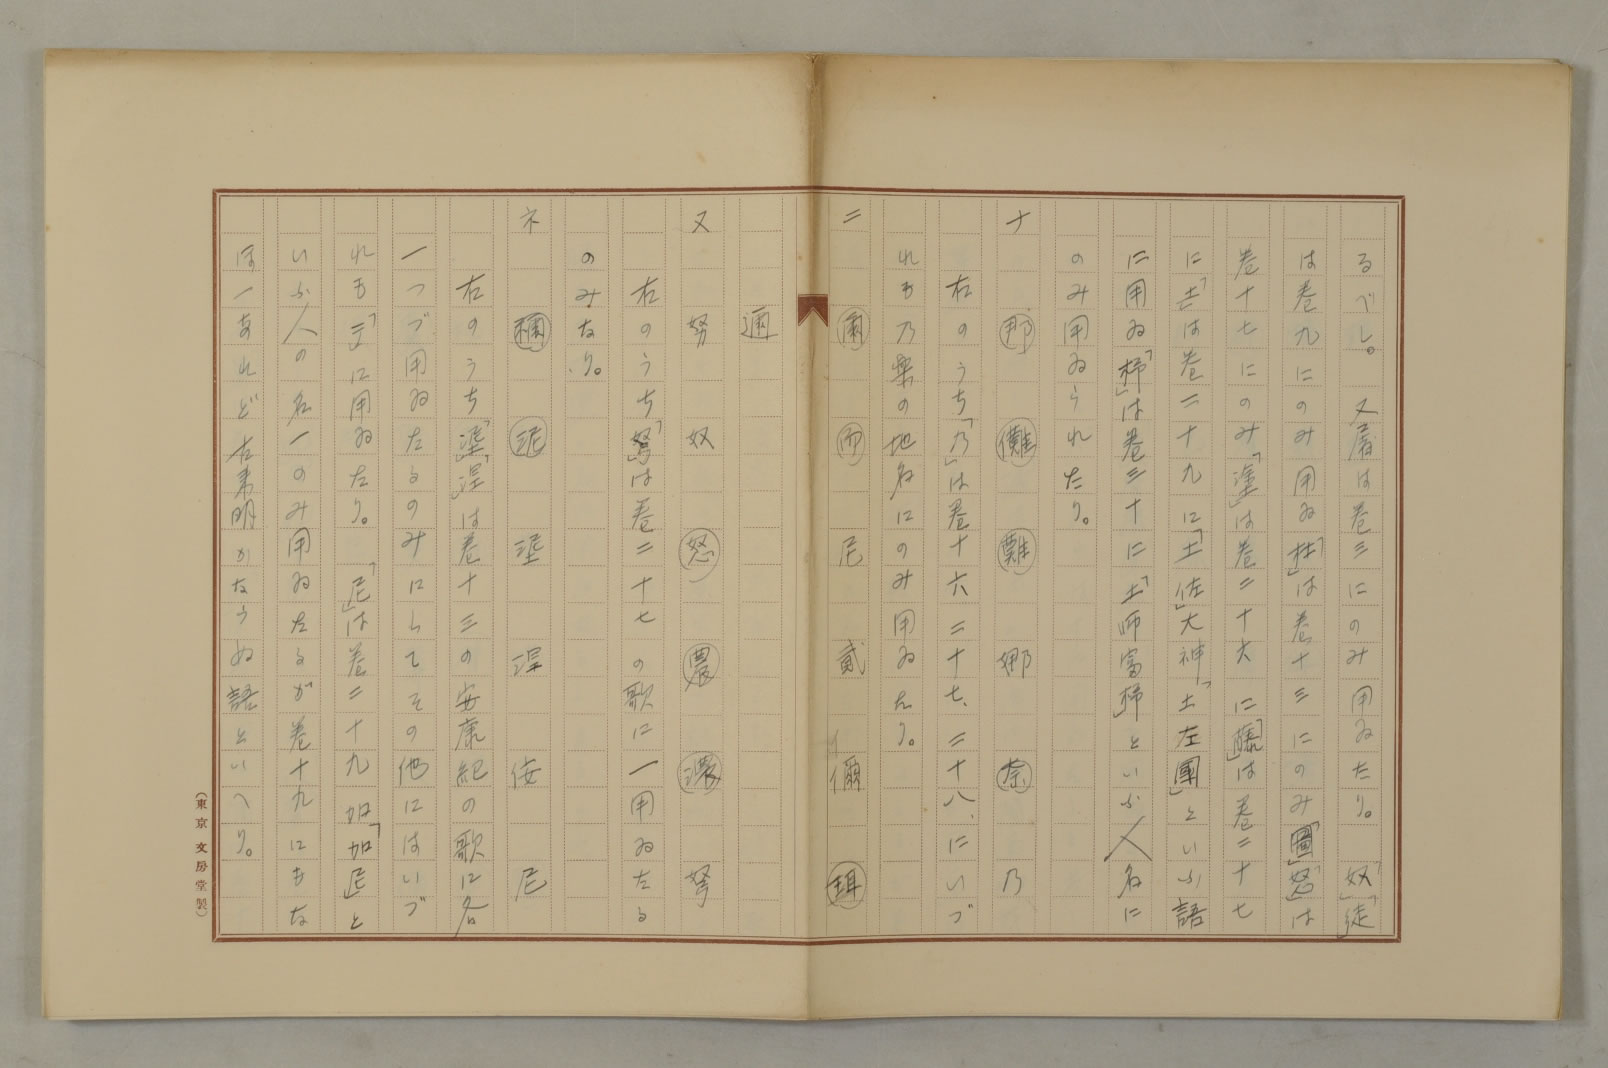 るべし。又屠は巻三にのみ用ゐたり。「奴」「徒」
は巻九にのみ用ゐ「杜」は巻十三にのみ「圖」「怒」は
巻十七にのみ「塗」は巻二十六に「騰」は巻二十七
に「吐」は巻二十九に「土」「佐」大神「土左團」といふ語
に用ゐ「梯」は巻三十に「土」師富「梯」といふ人名に
のみ用ゐられたり。
ナ 那 儺 難 娜 奈 乃
右のうち「乃」は巻十六二十七、二十八、にいづ
れも乃樂の地名にのみ用ゐたり。
ニ 爾 而 尼 貳 儞 珥
邇
ヌ 努 奴 怒 農 濃 弩
右のうち「弩」は巻二十七の歌に一用ゐたる
のみなり。
ネ 禰 泥 埿 涅 侫 尼
右のうち「埿」「涅」は巻十三の安康紀の歌に各
一つづ用ゐたるのみにしてその他にはいづ
れも「ニ」に用ゐたり。「尼」は巻二十九加「加尼」と
いふ人の名一のみ用ゐたるが巻十九にもな
ほ一あれど右書明かならぬ語といへり。
(東京文房堂製)